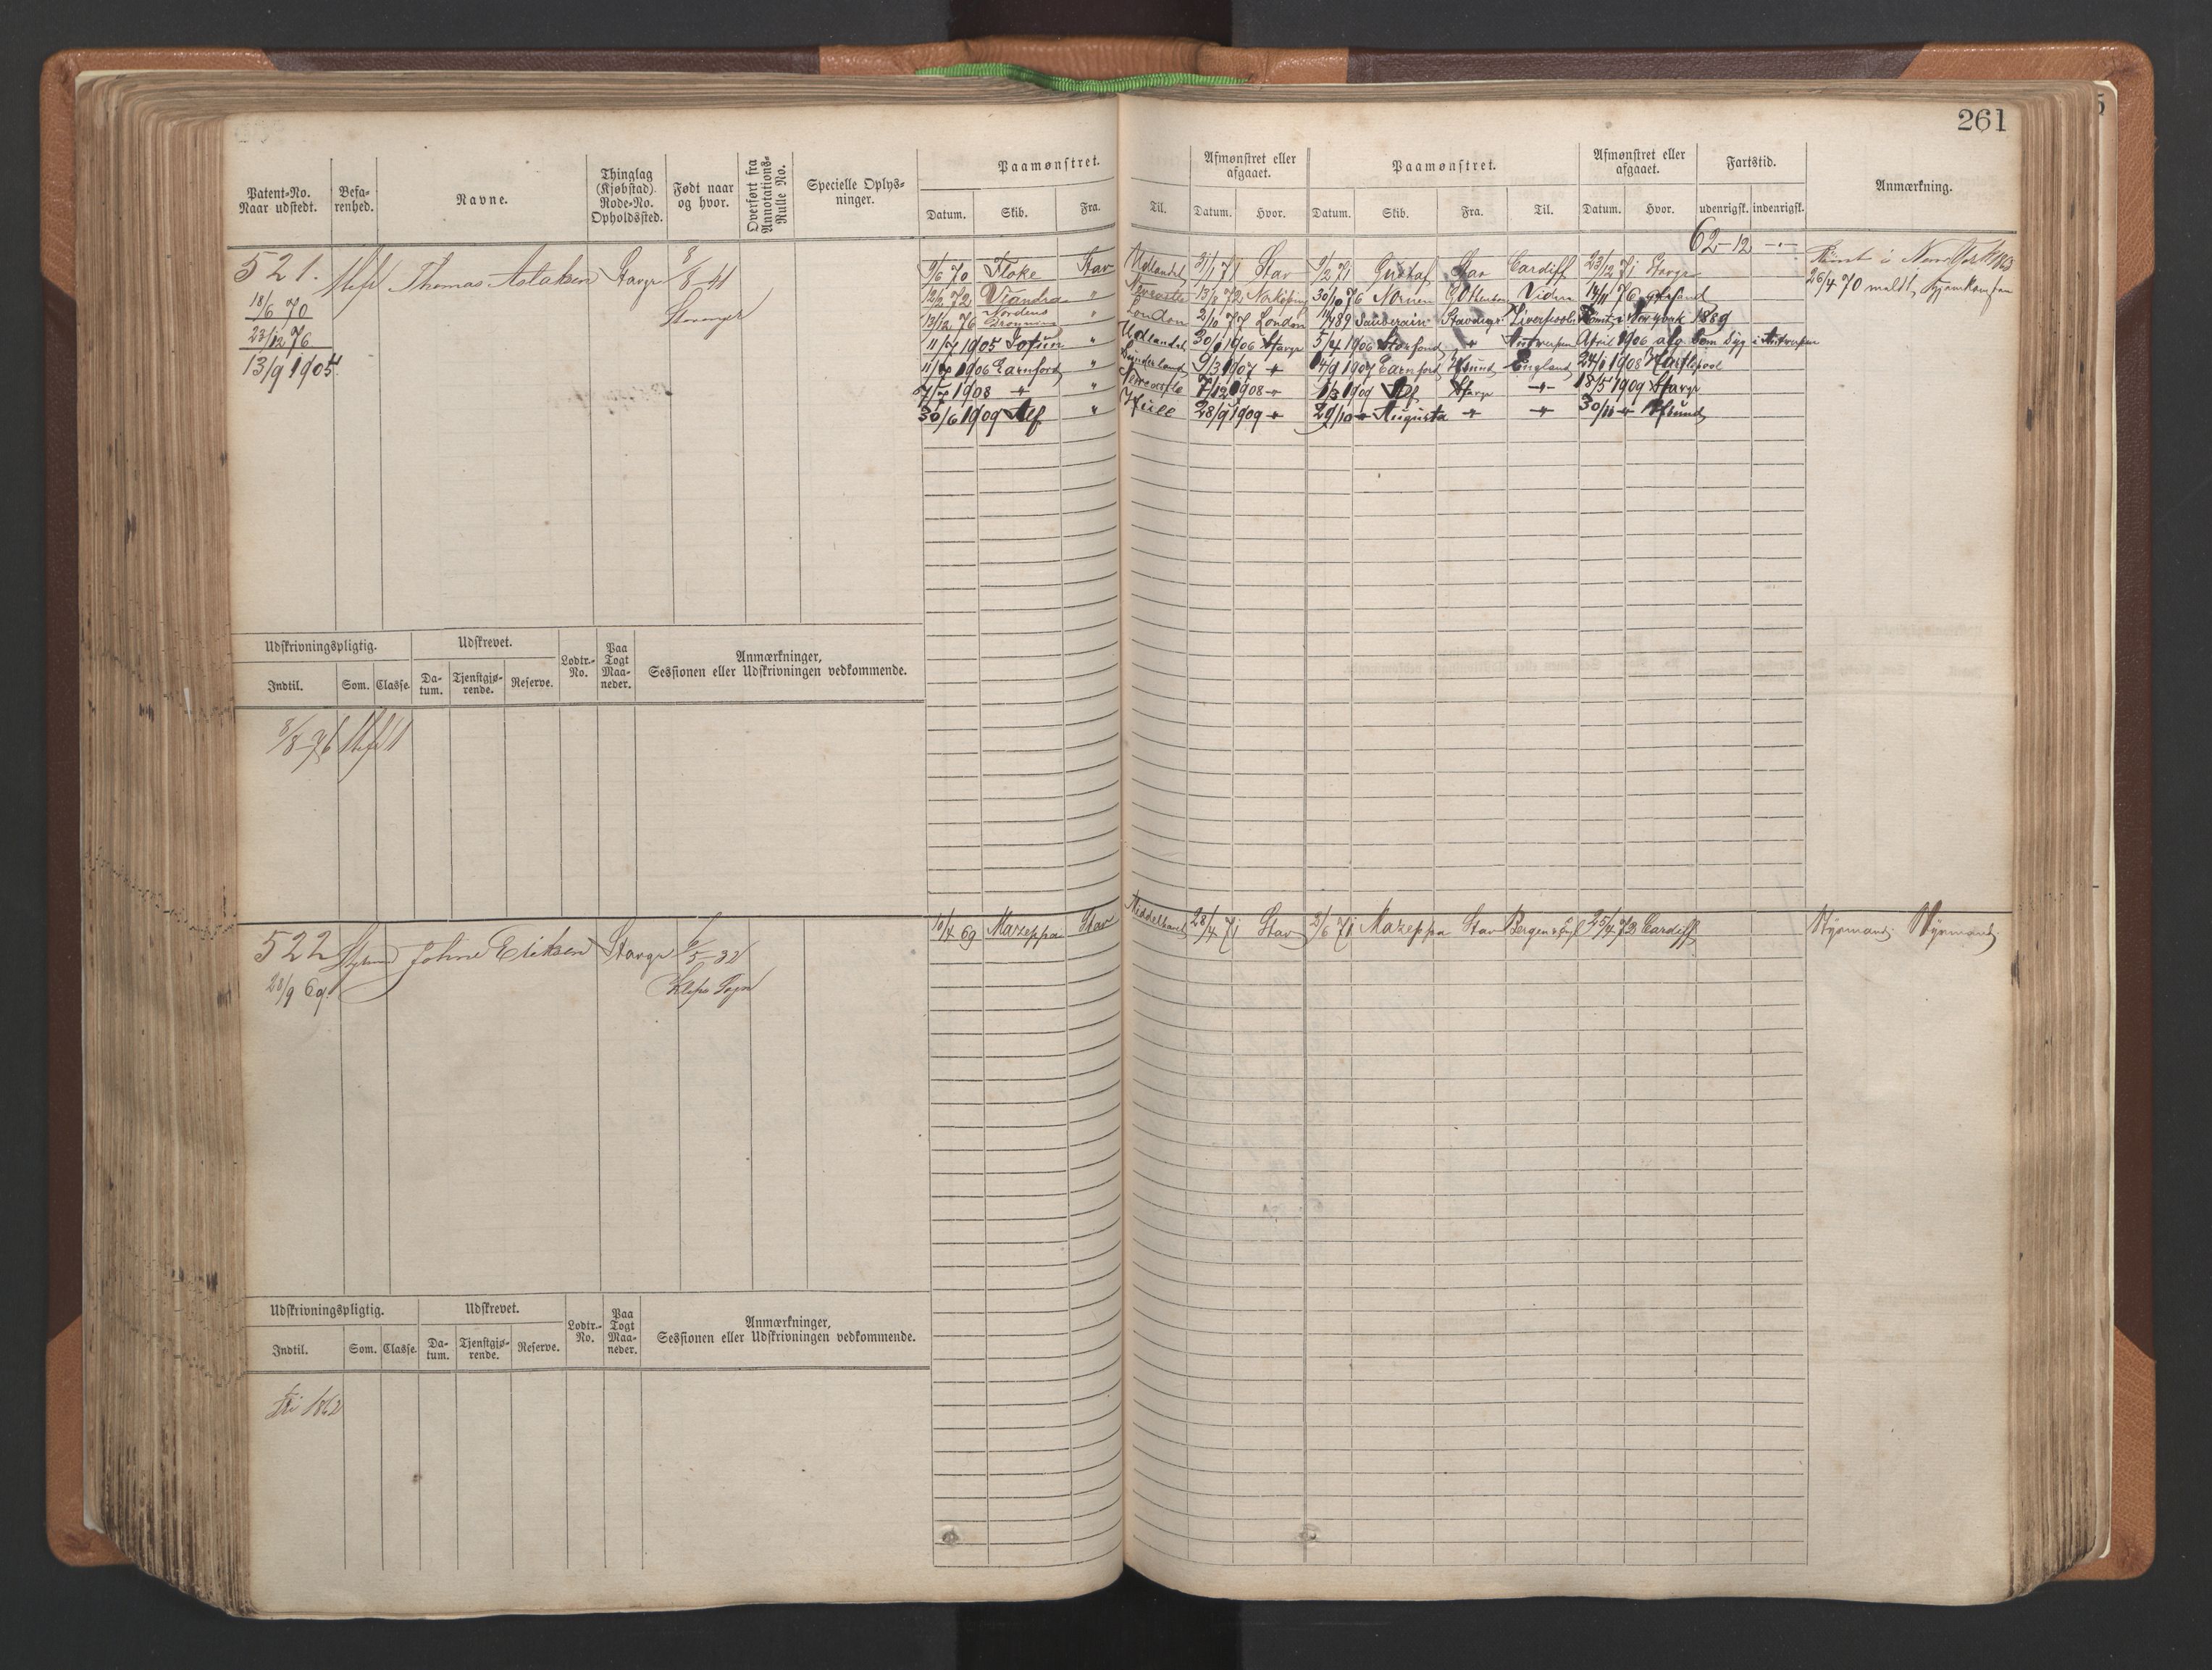 261
Patent-No. Naar udstedt.
Befa-renhed.
Navne.
Thinglag (Kjøbstad). Rode-No. Opholdssted.
Født naar og hvor.
Overført fra Annotations-Rulle No.
Specielle Oplys-ninger.
Paamønstret.
Datum. Skib. Fra. Til.
Afmønstret eller afgaaet.
Datum. Hvor.
Paamønstret.
Datum. Skib. Fra. Til.
Afmønstret eller afgaaet.
Datum. Hvor.
Fartstid.
udenrigsk. indenrigsk.
Anmærkning.
62-12
521. Thomas Aslaksen Stavgr 8/8-41
Stavanger
18/6 70
23/12 76
13/9 1905
9/6 70 Floke Stav Udlandet 3/1 71 Stav 9/2 71 Gustaf Stav Cardiff 23/12 71 Stavgr
12/2 72 " 13/8 72 Norköping 30/10 76 Nornen Viden 14/11 76
13/12 76 Nordens Dronning " London 2/10 77 London Stavanger Liverpool New York 1889
11/7 1905 " Udlandet 30/1 1906 Stavgr 5/4 1906 " Antwerpen April 1906 afg. som syg i Antwerpen
11/7 1906 Earnford " Sunderland 9/3 1907 " Earnford England 24/1 1908 Hartlepool
1908 " " Newcastle 7/12 1908 " 1/3 1909 Alf Stavgr " 18/5 1909 Stavgr
30/6 1909 Alf " Hull 28/9 1909 " 29/10 " Augusta " " 30/11 "
Rømt i New York
26/4 70 meldt hjemkommen
Udskrivningspligtig.
Indtil. Som. Classe
Udskrevet.
Da-tum. Tjenstgjø-rende. Reserve.
Lodtr.-No.
Paa Togt Maa-neder.
Anmærkninger, Sessionen eller Udskrivningen vedkommende.
8/8-76
522 Styrmd Johne Eriksen Stavgr 9/5-32
28/9 69. Klep Sogn
10/4 69 Mazeppa Stav Middelhavet 28/4 71 Stav 2/6 71 Mazeppa Stav Bergen 25/4 73 Cardiff
Styrmand. Styrmand.
Udskrivningspligtig.
Indtil. Som. Classe
Udskrevet.
Da-tum. Tjenstgjø-rende. Reserve.
Lodtr.-No.
Paa Togt Maa-neder.
Anmærkninger, Sessionen eller Udskrivningen vedkommende.
fri 1862